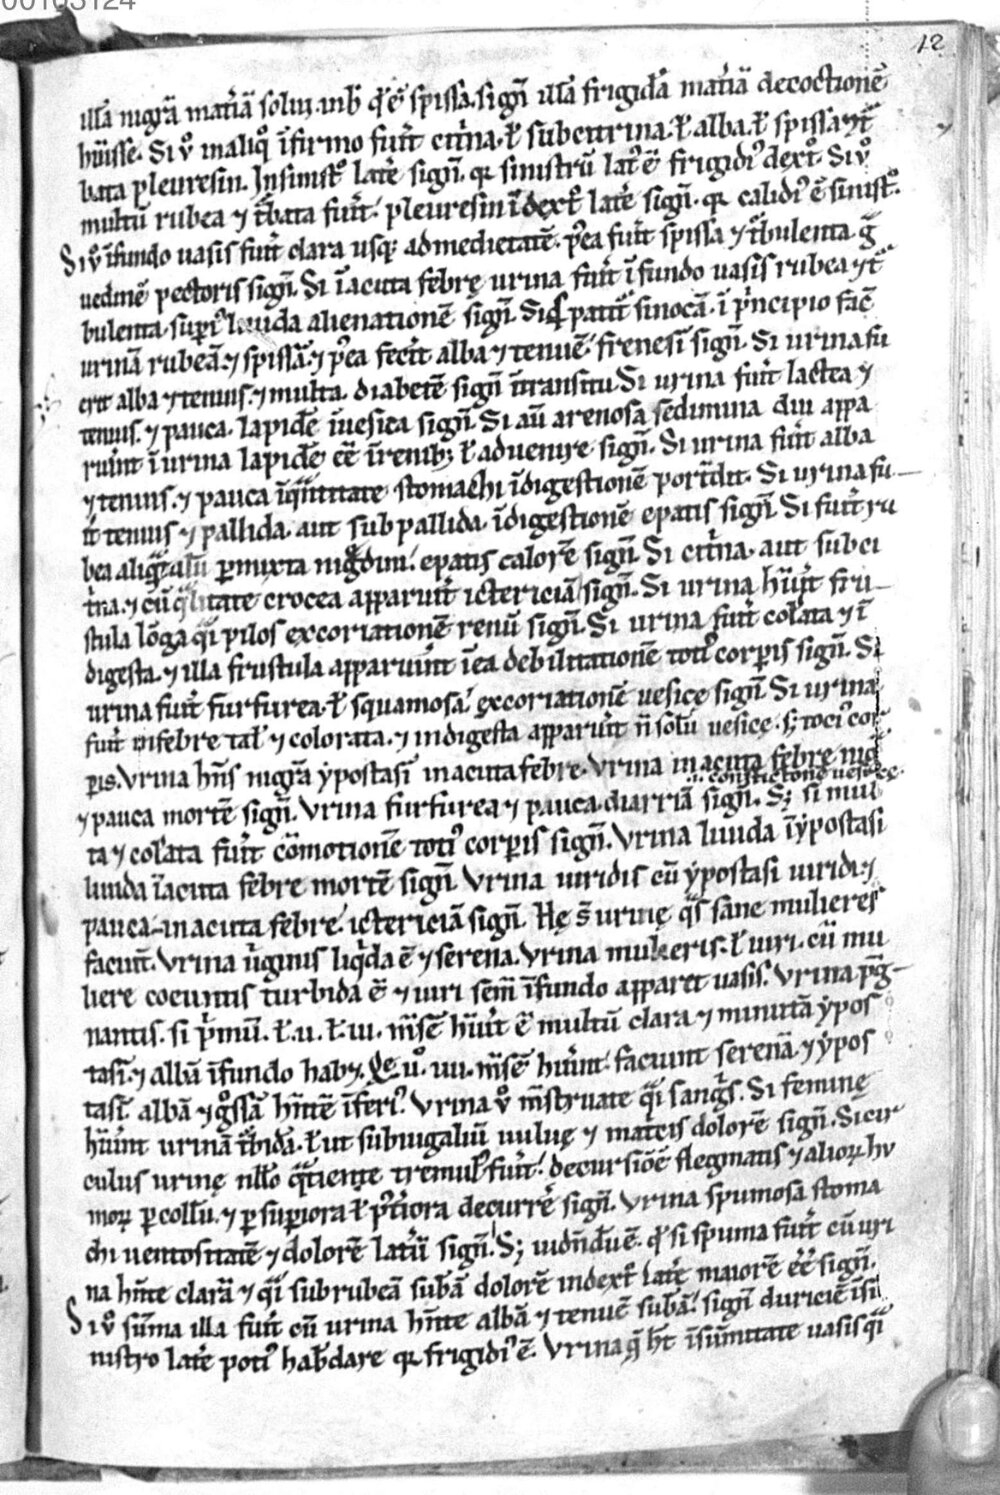 00103124
12
illā nigrā mat̄iā solū. inb̄ qđ ē spissa. signͫ illā frigidā mat̄iā decoctionē
huisse. Si ỽ in aliq̊ īfirmo fuīt cit̄na. ł subcitrina. ł alba. ł spissa ⁊ t̄
bata pleuresin. In sinist̊ latē signͫ. qꝛ sinistrū latꝰ ē frigidiꝰ dext̊. Si ỽ
multū rubea ⁊ t̄bata fuīt. pleuresin ī dext̊ latē signͫ. qꝛ calidiꝰ ē sinist̊.
Si ỽ ī fundo uasis fuīt clara usqꝫ ad medietatē. p̄ea fuīt spissa ⁊ t̄bulenta. g̃
uedinē pectoris signͫ. Si ī acuta febrę urina fuīt ī fundo uasis rubea ⁊ t̄
bulenta. supiꝰ liuida alienationē signͫ. Si ꝗ patit̄ sinocā. ī p̄ncipio facē
urinā rubeā. ⁊ spissā. ⁊ p̄ea fecīt alba ⁊ tenuē. frenesī signͫ. Si urina fu
erit alba ⁊ tenuis. ⁊ multa. diabetē signͫ ī transitu. Si urina fuīt lactea ⁊
tenuis. ⁊ pauca. lapidē ī uesica signͫ. Si aū arenosa sedimina diu appa
ruīnt ī urina lapidē eē ī renibꝫ ł aduenire signͫ. Si urina fuīt alba
⁊ tenuis. ⁊ pauca ī q̄ntitate stomachi īdigestionē portēdit. Si urina fu
it tenuis ⁊ pallida. aut subpallida. īdigestionē epatis signͫ. Si fuīt ru
bea aliq̄ntulū ꝑmixta nigdini. epatis calorē signͫ. Si cit̄na. aut subci
t̄na. ⁊ cū q̄litate crocea apparuīt ictericiā signͫ. Si urina hūīt fru
stula lōga q̄i pilos excoriationē renū signͫ. Si urina fuīt colāta ⁊ ī
digesta. ⁊ illa frustula apparuīnt ī ea debilitationē totiꝰ corꝑis signͫ. Si
urina fuīt furfurea. ł squamosa. excoriationē uesicę signͫ. Si urina
fuīt in febre tał ⁊ colorata. ⁊ indigesta apparuīt ñ solū uesicę. sꝫ tociꝰ cor
ꝑis. Urina hñs nigrā ẏpostasī in acuta febre. Urina in acuta febre nig̃
⁊ pauca mortē signͫ. Urina furfurea ⁊ pauca. diarriā signͫ. Sꝫ si mul
ta ⁊ colāta fuīt cōmotionē totiꝰ corꝑis signͫ. Urina liuida ī ẏpostasi
liuida ī acuta febre mortē signͫ. Urina uiridis cū ẏpostasi uiridi. ⁊
pauca. in acuta febre. ictericiā signͫ. Hę s̄ urinę q̄s sane mulieres
faciunt. Urina ūginis liq̇da ē ⁊ serena. Urina mulieris. ł uiri. cū mu
liere coeuntis turbida ē ⁊ uiri semē ī fundo apparet uasis. Urina p̄g
nantis. si p̄mū. ł .ii. ł .iii. m̄sē hūīt ē multū clara ⁊ minutā ẏpos
tasī. ⁊ albā ī fundo habꝫ. Q̄ ỽ .iiii. m̄sē hūīnt. faciunt serenā. ⁊ ẏpos
tasī albā ⁊ g̊ssā hñtē īferiꝰ. Urina ỽ m̄struate q̄i sang̃s. Si feminę
hūīnt urinā t̄bidā. ł ut subiugaliū uuluę ⁊ mat̄cis dolorē signͫ. Si cir
culus urinę nłło q̄tiente tremulꝰ fuīt. decursiōē flegmatis ⁊ alioꝝ hu
moꝝ ꝑ collū. ⁊ ꝑ suꝑiora ł p̄t̄iora decurrē signͫ. Urina spumosa stoma
chi uentositatē ⁊ dolorē latūī signͫ. Sꝫ uidñdū ē. qđ si spuma fuīt cū uri
na hñte clarā ⁊ q̄i subrubeā subā dolorē in dext̊ latē maiorē eē signͫ.
Si ỽ sūma illa fuīt cū urina hñte albā ⁊ tenuē subā. signͫ duriciē ī si
nistro latē potiꝰ habūdare qꝛ frigidiꝰ ē. Urina q̄ ht̄ ī sūmitate uasis q̄i